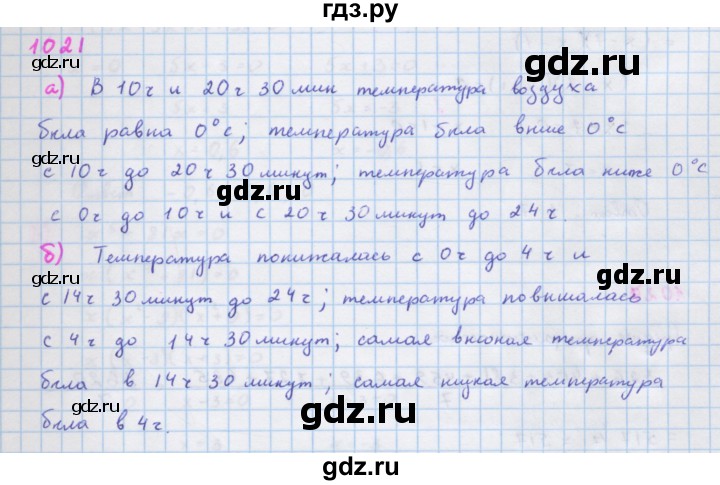 гдз.ру
1021
gdz.ru
gdz.ru
а) В 10 ч и 20 ч 30 мин температура воздуха
gdz.ru
была равна 0°с; температура была выше 0°с
gdz.ru
с 10 ч до 20 ч 30 минут; температура была ниже 0°с
с 0 ч до 10 ч и с 20 ч 30 минут до 24 ч.
gdz.ru
gdz.ru
б) Температура понижалась с 0 ч до 4 ч и
gdz.ru
с 14 ч 30 минут до 24 ч; температура повышалась
с 4 ч до 14 ч 30 минут; самая высокая температура
gdz.ru
была в 14 ч 30 минут; самая низкая температура
gdz.ru
была в 4 ч.
gdz.ru
gdz.ru